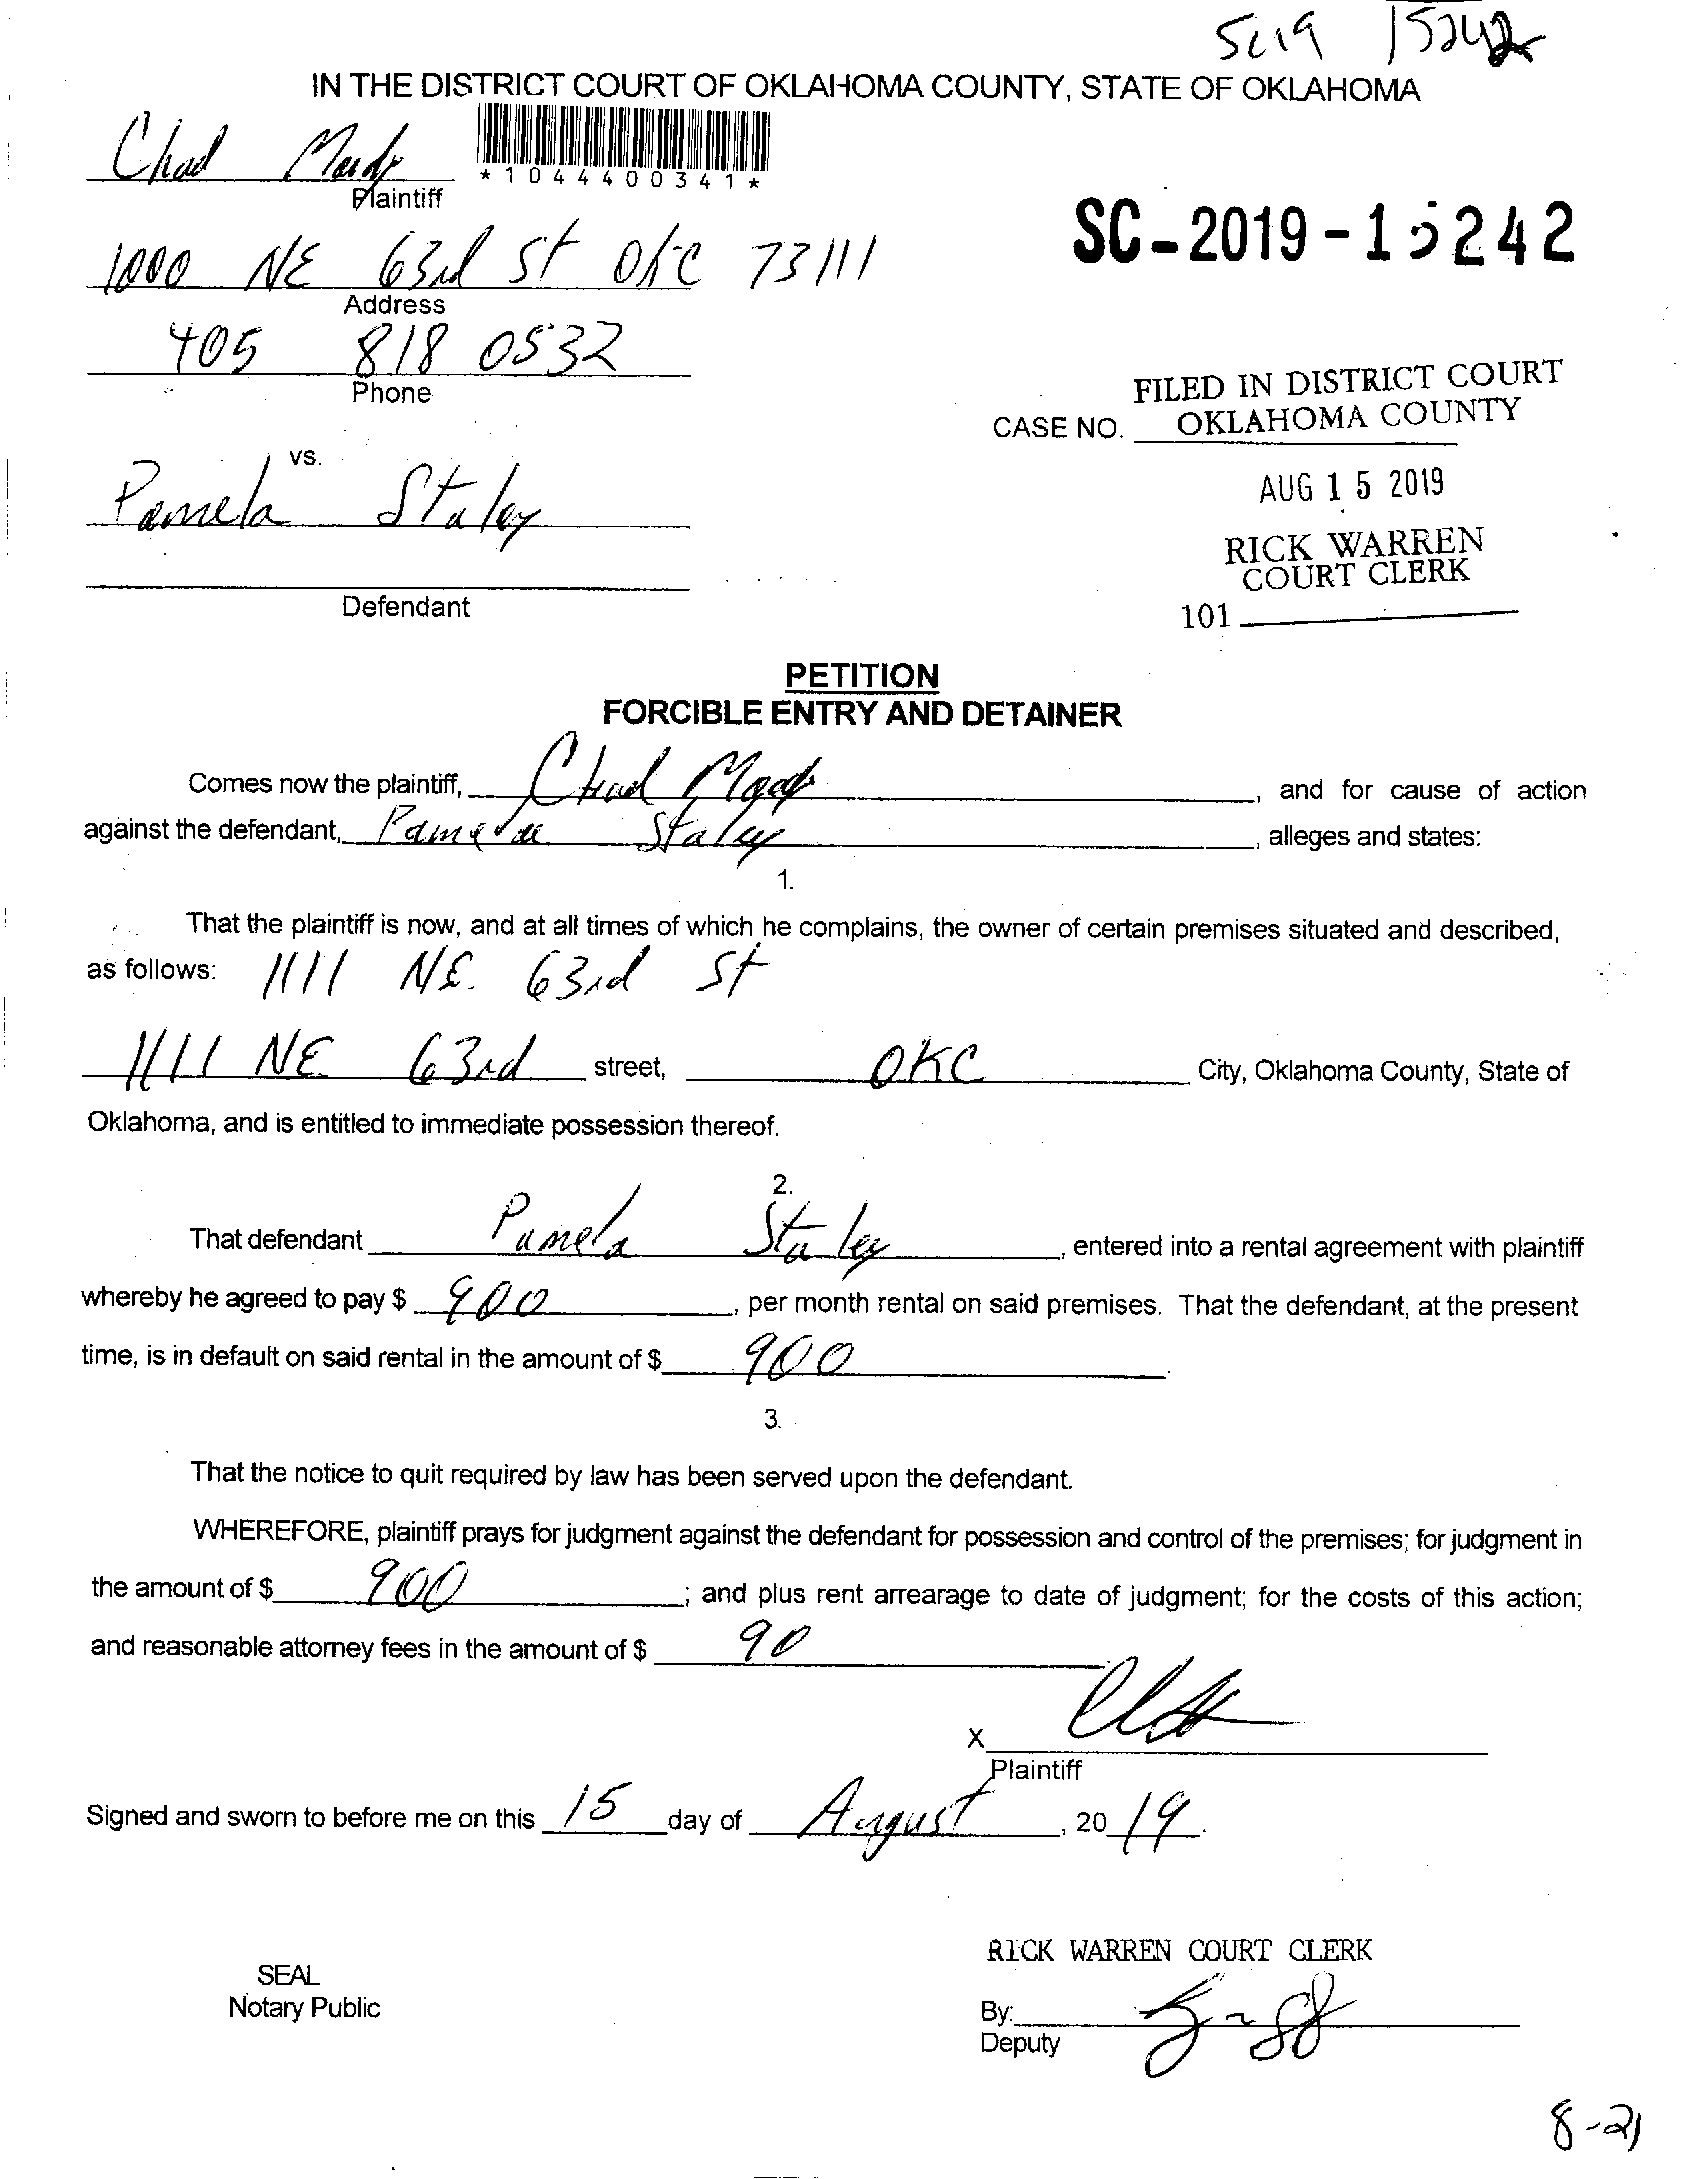 SC19 15242
IN THE DISTRICT COURT OF OKLAHOMA COUNTY, STATE OF OKLAHOMA
Chad
*1044400341*
Plaintiff
SC-2019-15242
1000 NE 63rd St OKC 73111
Address
405 818 0532
Phone
FILED IN DISTRICT COURT
CASE NO. OKLAHOMA COUNTY
vs.
AUG 15 2019
Pamela Staley
RICK WARREN
COURT CLERK
Defendant
101
PETITION
FORCIBLE ENTRY AND DETAINER
Comes now the plaintiff, Chad , and for cause of action
against the defendant, Pamela Staley , alleges and states:
1.
That the plaintiff is now, and at all times of which he complains, the owner of certain premises situated and described,
as follows: 1111 NE. 63rd St
1111 NE 63rd street, OKC City, Oklahoma County, State of
Oklahoma, and is entitled to immediate possession thereof.
2.
That defendant Pamela Staley , entered into a rental agreement with plaintiff
whereby he agreed to pay $ 900 , per month rental on said premises. That the defendant, at the present
time, is in default on said rental in the amount of $ 900 .
3.
That the notice to quit required by law has been served upon the defendant.
WHEREFORE, plaintiff prays for judgment against the defendant for possession and control of the premises; for judgment in
the amount of $ 900 ; and plus rent arrearage to date of judgment; for the costs of this action;
and reasonable attorney fees in the amount of $ 90
X
Plaintiff
Signed and sworn to before me on this 15 day of August , 20 19.
RICK WARREN COURT CLERK
SEAL
Notary Public
By:
Deputy
8-21